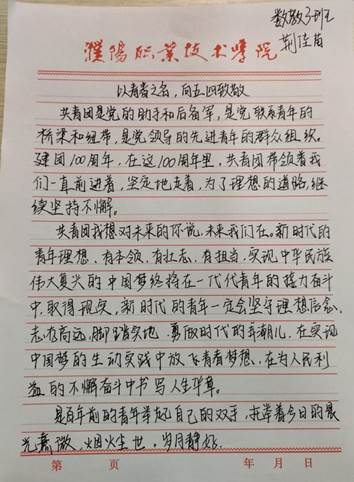 数教3班
荆佳苗
濮阳职业技术学院
以青春之名，向五四致敬
共青团是党的助手和后备军，是党联系青年的
桥梁和纽带，是党领导的先进青年的群众组织。
建团100周年，在这100周年里，共青团带领着我
们一直前进着，坚定地走着，为了理想的道路，继
续坚持不懈。
共青团我想对未来的你说，未来我们在。新时代的
青年理想，有本领，有壮志，有担当，实现中华民族
伟大复兴的中国梦终将在一代代青年的接力奋斗
中，取得现实，新时代的青年一定会坚守理想信念，
志存高远，脚踏实地，勇做时代的弄潮儿，在实现
中国梦的生动实践中放飞青春梦想，在为人民利
益的不懈奋斗中书写人生华章。
是百年前的青年举起自己的双手，托举着今日的晨
光熹微，烟火尘世，岁月静好。
第 页 年 月 日